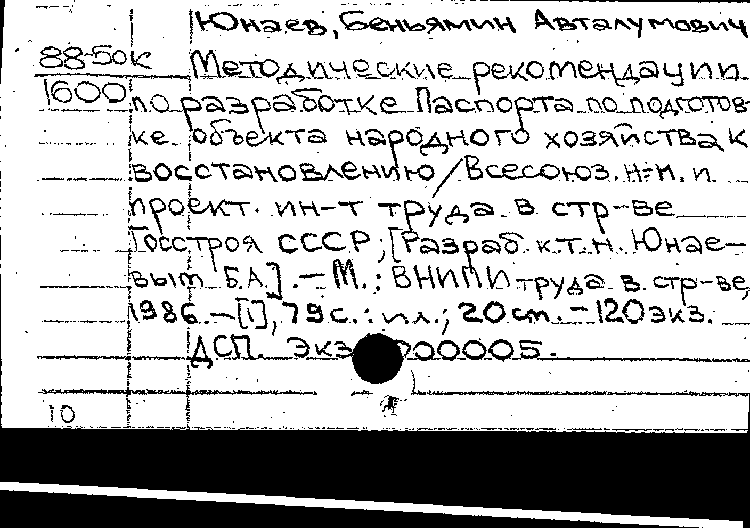 Юнаев, Беньямин Авталумович
88-50к Методические рекомендации
1600 по разработке Паспорта по подготов
ке объекта народного хозяйства к
восстановлению / Всесоюз. н-и. и
проект. ин-т труда в стр-ве
Госстроя СССР; [Разраб. к.т.н. Юнае-
вым Б.А.]. – М.: ВНИПИ труда в стр-ве,
1986. – [1], 79 с.: ил.; 20 см. – 120 экз.
ДСП. Экз 000005.
10